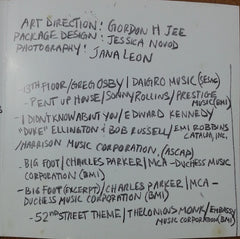 ART DIRECTION: GORDON H JEE
PACKAGE DESIGN: JESSICA NOVOD
PHOTOGRAPHY: JANA LEON
-13TH FLOOR/GREG OSBY/DAIGRO MUSIC (SESAC)
-PENT UP HOUSE/SONNY ROLLINS/PRESTIGE MUSIC (BMI)
-I DIDN'T KNOW ABOUT YOU/EDWARD KENNEDY
"DUKE" ELLINGTON & BOB RUSSELL/EMI ROBBINS CATALOG, INC.
/HARRISON MUSIC CORPORATION, (ASCAP)
-BIG FOOT/CHARLES PARKER/MCA-DUCHESS MUSIC
CORPORATION (BMI)
-BIG FOOT (EXCERPT)/CHARLES PARKER/MCA-
DUCHESS MUSIC CORPORATION (BMI)
-52ND STREET THEME/THELONIOUS MONK/EMBASSY MUSIC CORPORATION (BMI)